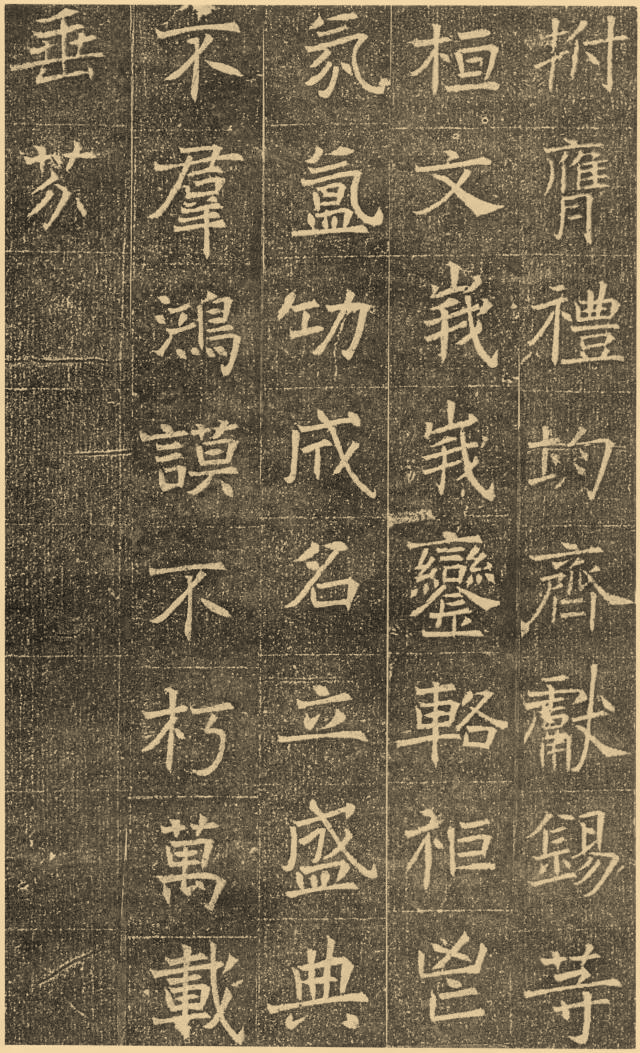 拊膺禮均齊獻錫䓁
桓文峩峩鑾輅秬鬯
氛氳㓛成名立盛典
不羣鴻謨不朽萬載
垂芬